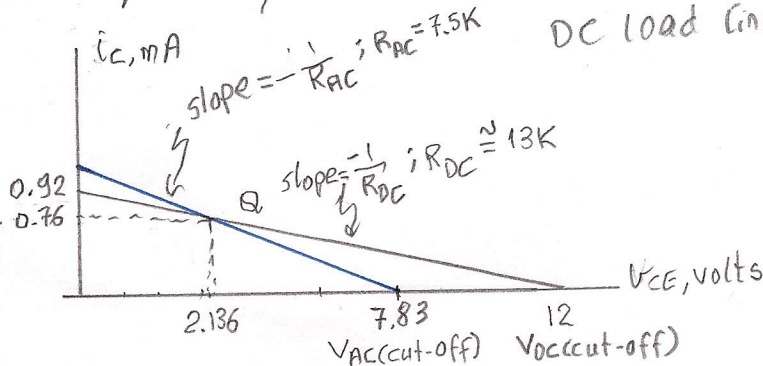 DC load lin
ic, mA
slope = -1/RAC ; RAC = 7.5K
slope = -1/RDC ; RDC ≅ 13K
0.92
0.76
Q
VCE, volts
2.136
7.83
12
VAC(cut-off)
VDC(cut-off)